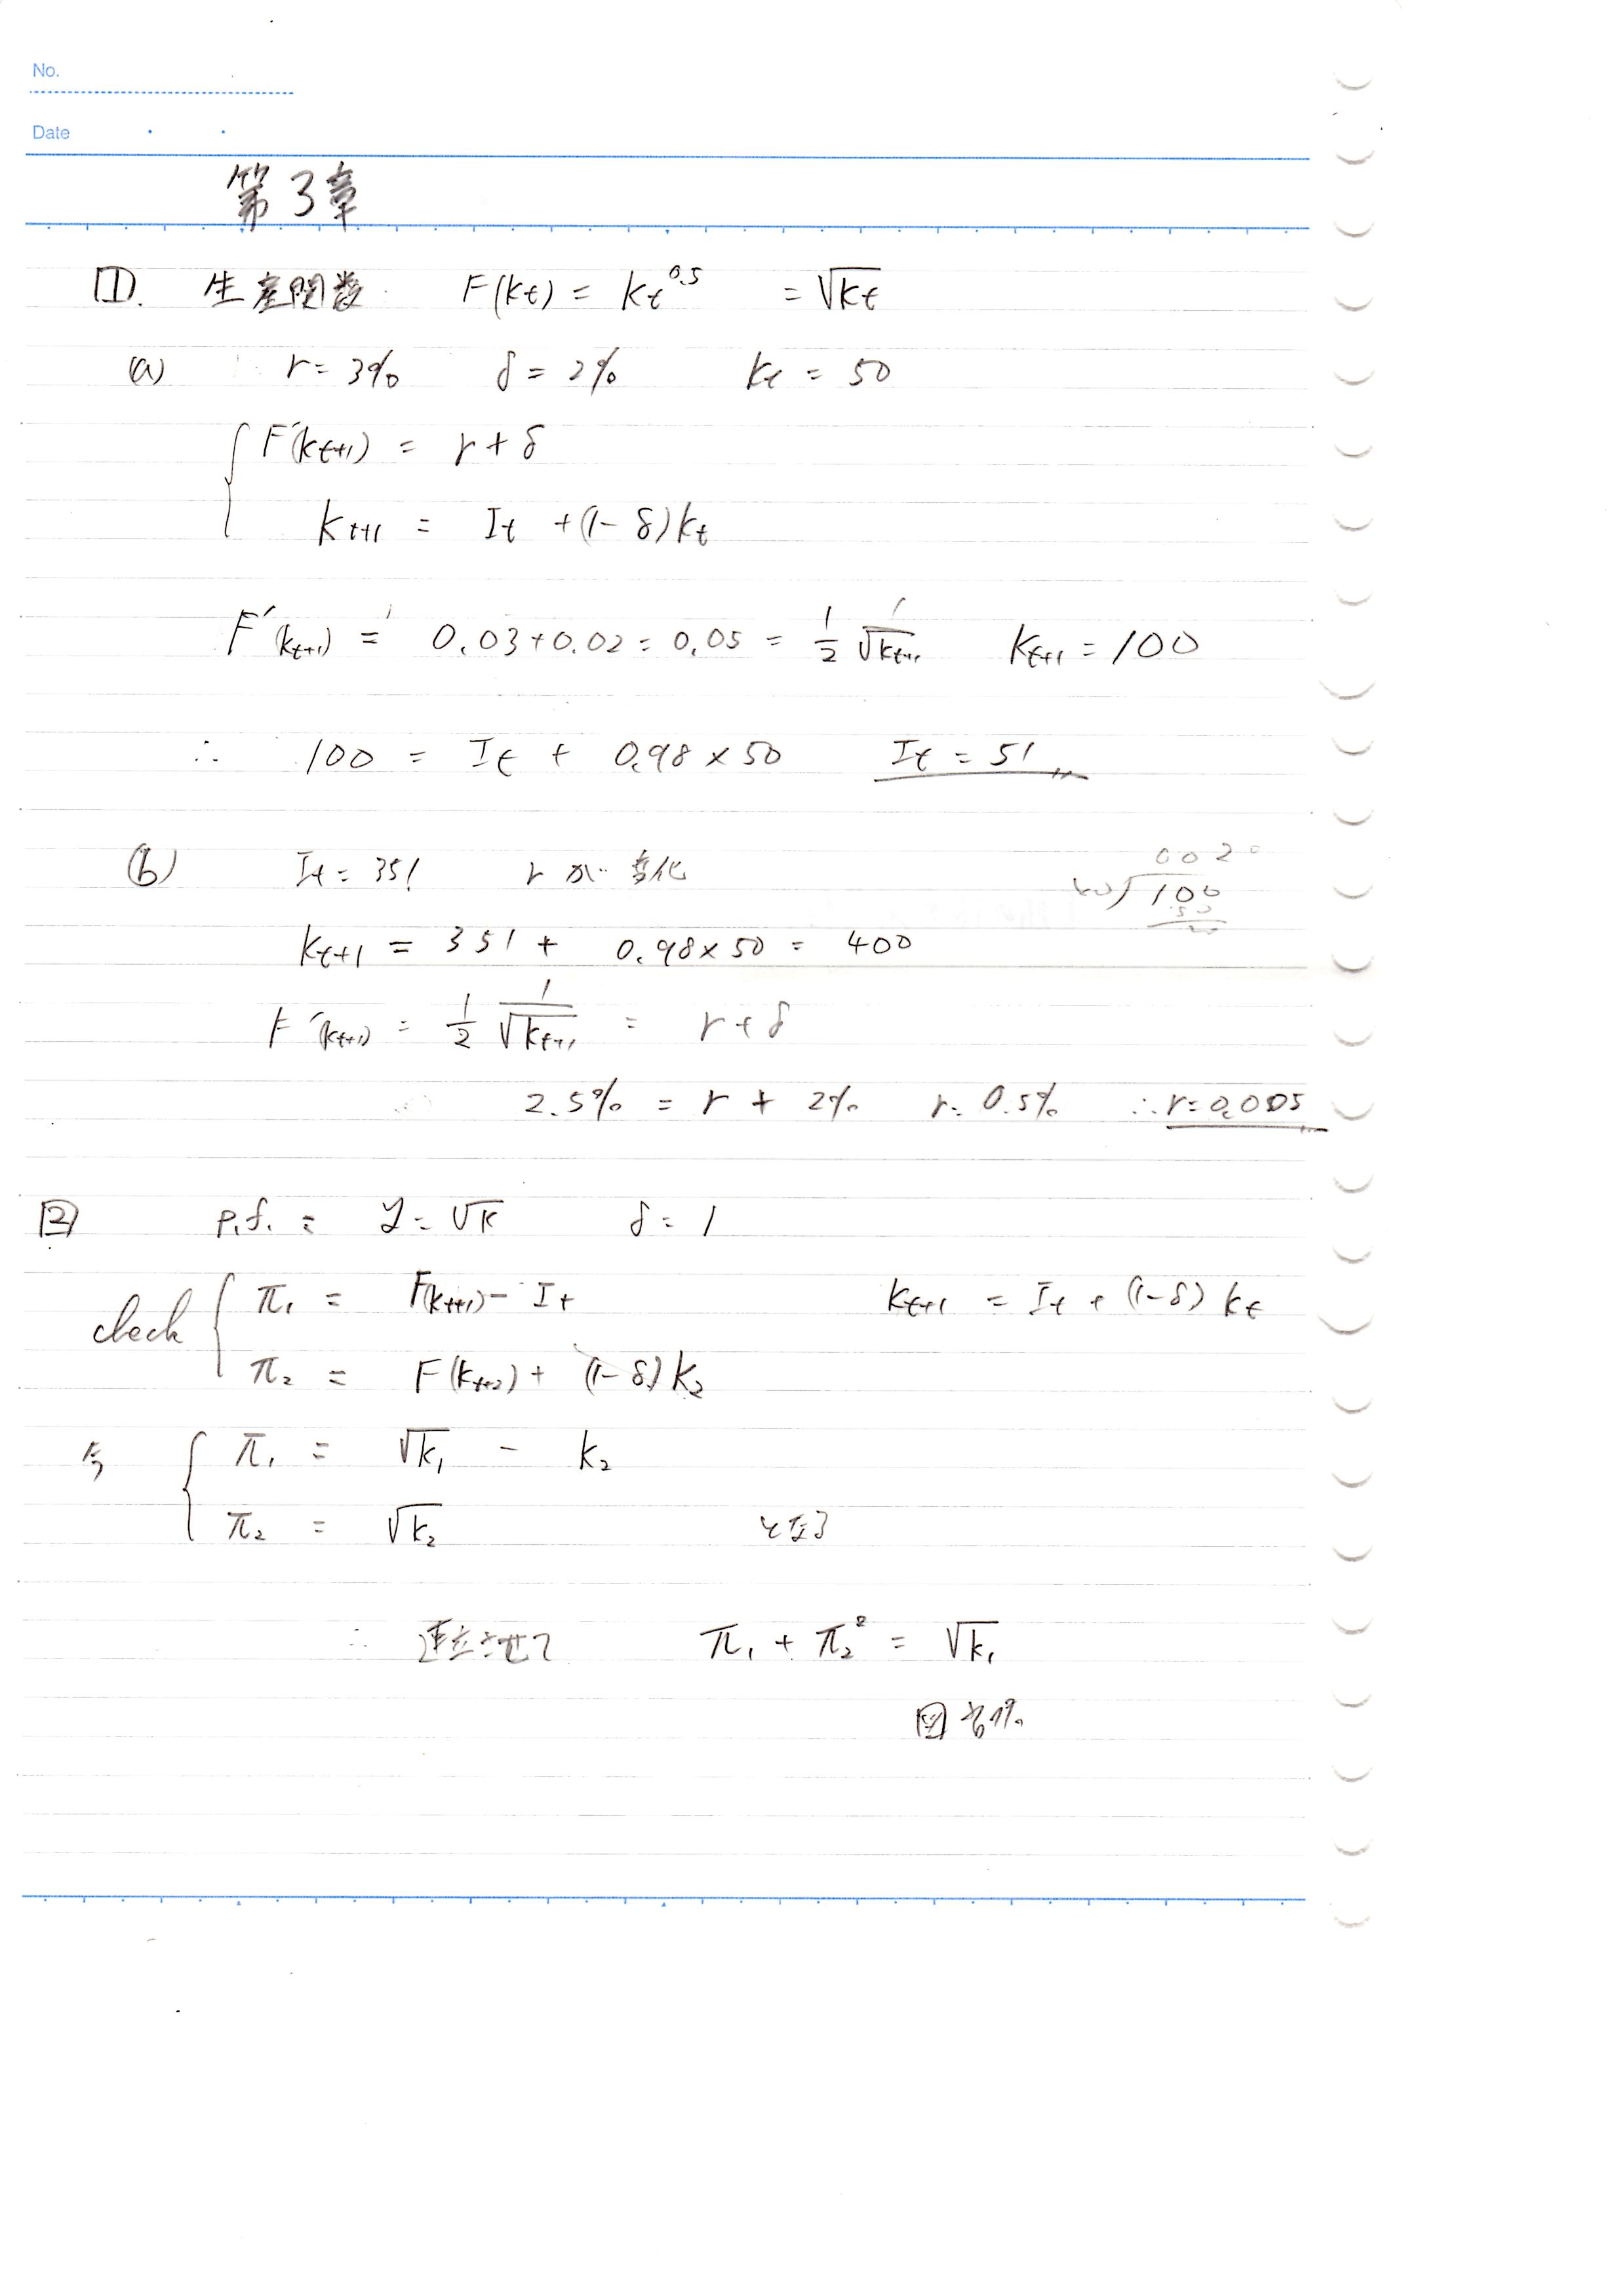 No.
Date
第3章
1. 生産関数 F(Kt) = Kt^0.5 = √Kt
(a) r = 3% δ = 2% Kt = 50
F'(Kt+1) = r + δ
Kt+1 = It + (1-δ)Kt
F'(Kt+1) = 0.03+0.02 = 0.05 = 1/2 1/√Kt+1 Kt+1 = 100
∴ 100 = It + 0.98 × 50 It = 51
(b) It = 351 r が変化
Kt+1 = 351 + 0.98×50 = 400
F'(Kt+1) = 1/2 1/√Kt+1 = r + δ
2.5% = r + 2% r = 0.5% ∴ r = 0.005
2 p.f. = y = √K δ = 1
check π1 = F(Kt+1) - It Kt+1 = It + (1-δ)Kt
π2 = F(Kt+2) + (1-δ)K2
今 π1 = √K1 - K2
π2 = √K2 となる
∴ 連立させて π1 + π2^2 = √K1
図